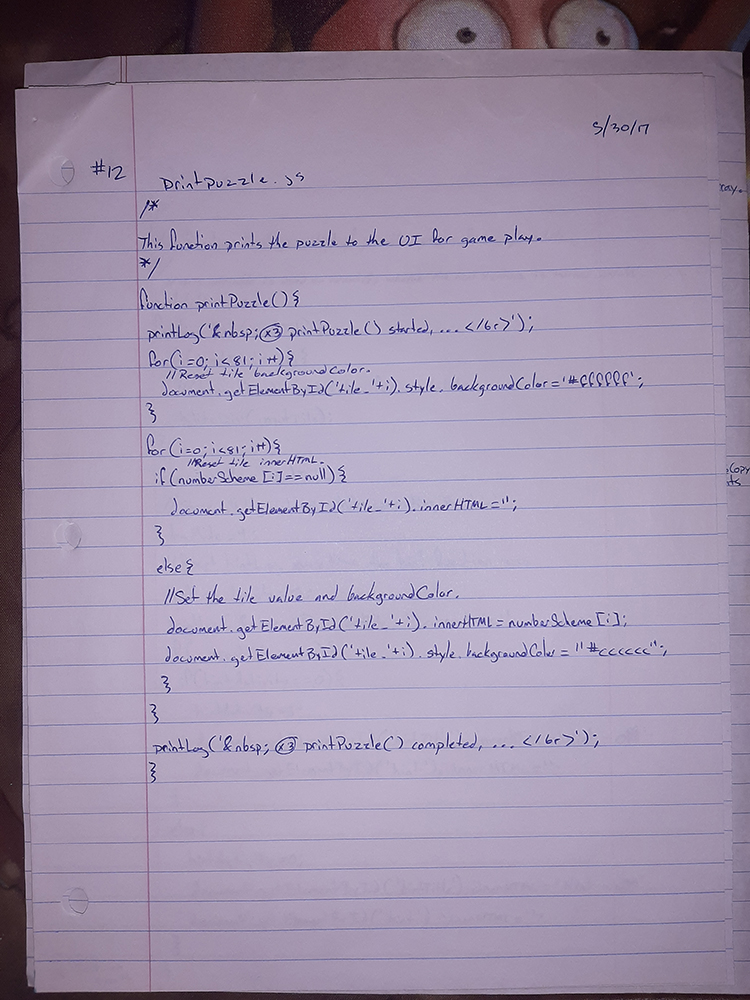 5/30/17
#12
printPuzzle.js
/*
This function prints the puzzle to the UI for game play.
*/
function printPuzzle(){
printLog('&nbsp; x3 printPuzzle() started, ... </br>');
for(i=0; i<81; i++){
//Reset tile backgroundColor.
document.getElementById('tile_'+i).style.backgroundColor='#ffffff';
}
for(i=0; i<81; i++){
//Reset tile innerHTML.
if(numberScheme[i]==null){
document.getElementById('tile_'+i).innerHTML='';
}
else{
//Set the tile value and backgroundColor.
document.getElementById('tile_'+i).innerHTML=numberScheme[i];
document.getElementById('tile_'+i).style.backgroundColor = "#cccccc";
}
}
printLog('&nbsp; x3 printPuzzle() completed, ... </br>');
}